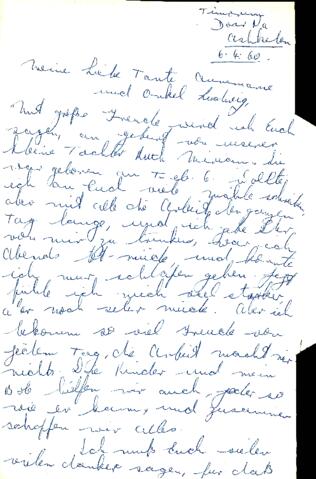 Timorim
Doar Na
Ashkelon
6.4.60.
Meine liebe Tante Annemarie
und Onkel Ludwig,
Mit große Freude wird ich Euch
sagen, an geburt von unserer
kleine Tochter Ruth Miriam. Sie
war geboren am Feb. 6. Sollte
ich an Euch viele mahle schreiben,
aber mit alle die Arbeit den ganzen
Tag lange, und
von mir zu trinken, war ich
Abends müde, und konnte
ich nur schlafen gehen. Jetzt
fühle ich mich viel starker
aber noch sehr müde. Aber ich
bekomm so viel Freude von
jedem Tag, die Arbeit macht mir
nichts. Die Kinder und mein
Bob helfen mir auch, jeder so
wie er kann, und zusammen
schaffen wir alles.
Ich muß Euch vielen
vielen danken sagen, für daß